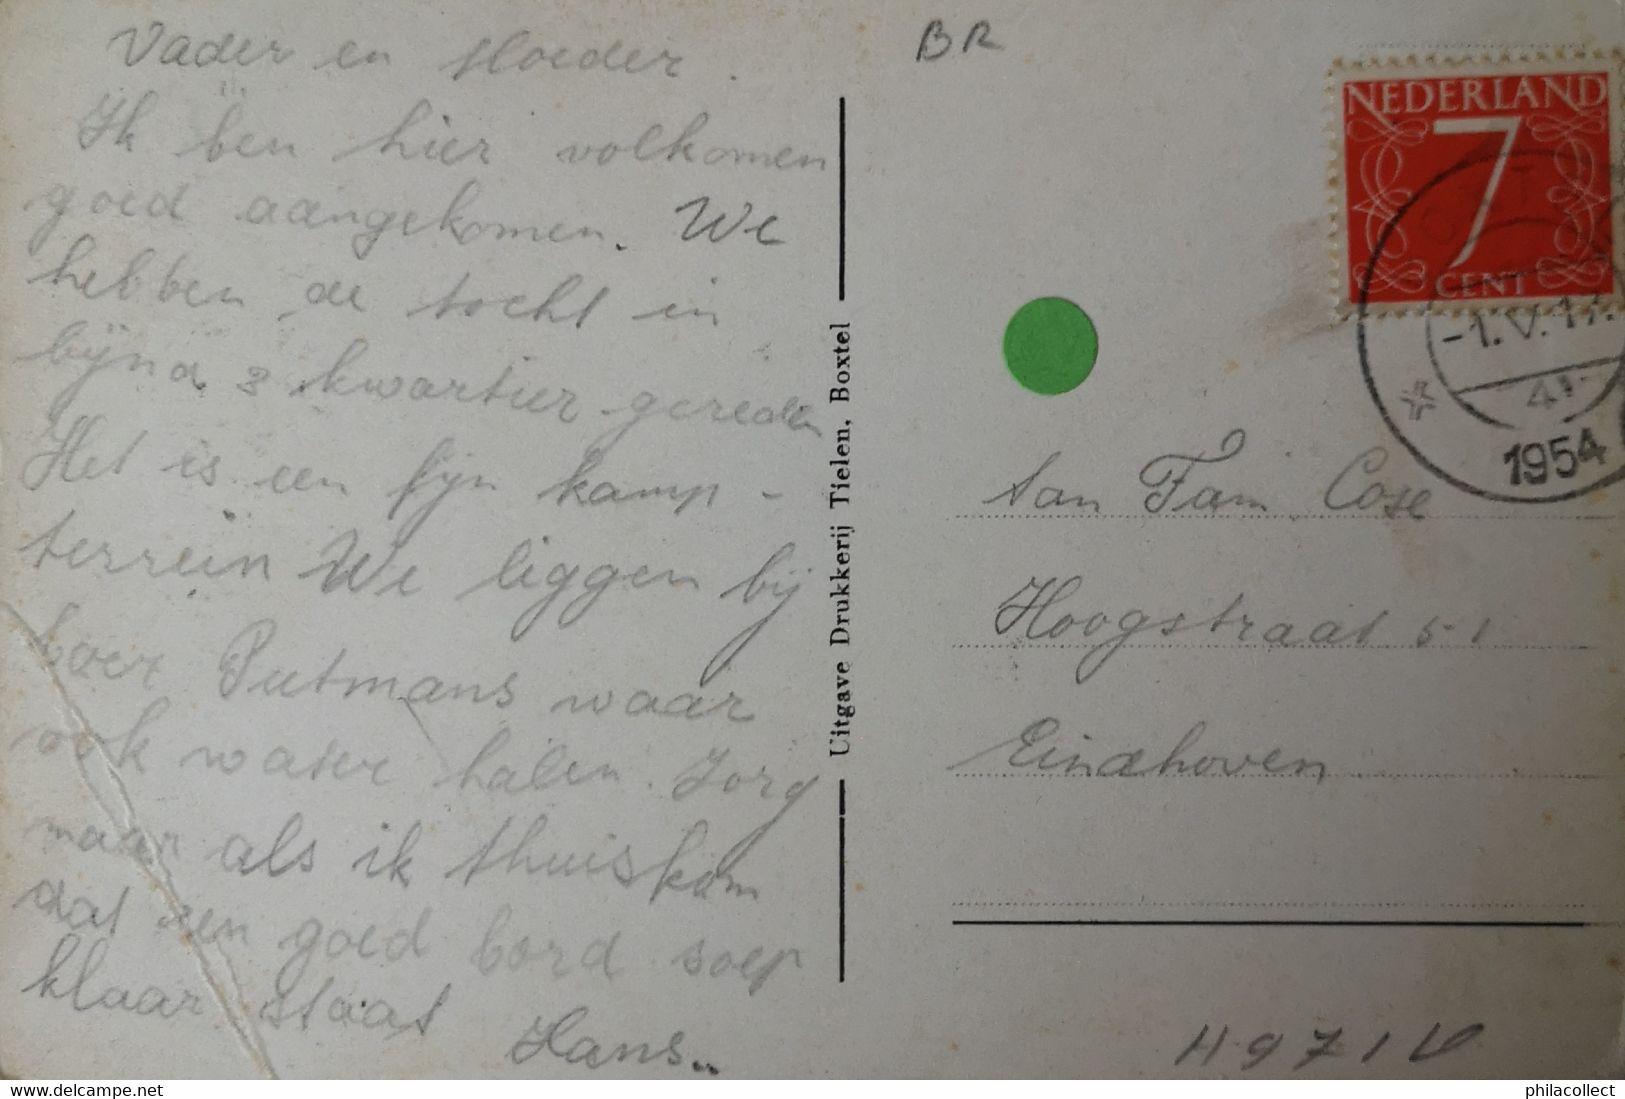 Vader en Moeder.
Ik ben hier volkomen
goed aangekomen. We
hebben de tocht in
bijna 3 kwartier gereden
Het is een fijn kamp-
terrein We liggen bij
boer Putmans waar
ook water halen. Zorg
maar als ik thuiskom
dat een goed bord soep
klaar staat
Hans..
Uitgave Drukkerij Tielen, Boxtel
BR
NEDERLAND
7
CENT
-1.V.17
1954
Aan Fam. Cose
Hoogstraat 51
Eindhoven
H971V
delcampe.net
philacollect